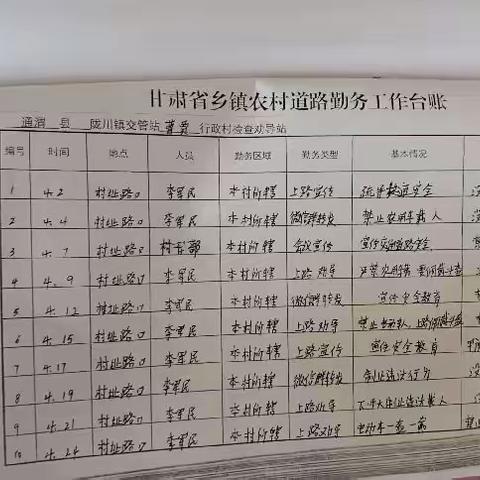 甘肃省乡镇农村道路勤务工作台账
通渭 县 陇川镇交管站 曹贾 行政村检查劝导站
编号 时间 地点 人员 勤务区域 勤务类型 基本情况
1 4.2 村址路口 李军民 本村所辖 上路宣传 安全
2 4.4 村址路口 李军民 本村所辖 微信群转发 禁止农用车载人
3 4.7 村址路口 村干部 本村所辖 会议宣传 宣传交通安全
4 4.9 村址路口 李军民 本村所辖 上路劝导
5 4.12 村址路口 李军民 本村所辖 微信群转发 宣传安全教育
6 4.15 村址路口 李军民 本村所辖 上路劝导 禁止
7 4.17 村址路口 李军民 本村所辖 上路宣传 宣传安全教育
8 4.19 村址路口 李军民 本村所辖 微信群转发 违法行为
9 4.21 村址路口 李军民 本村所辖 上路劝导
10 4.24 村址路口 李军民 本村所辖 上路劝导 电动车一盔一带